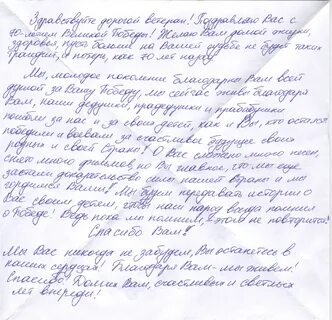 Здравствуйте дорогой ветеран! Поздравляю Вас с
70-летием Великой Победы! Желаю Вам долгой жизни,
здоровья, пусть больше на Вашей судьбе не будет таких
трагедий, и потерь, как 70 лет назад.
Мы, молодое поколение благодарно Вам всей
душой за Вашу Победу, мы сейчас живы благодаря
Вам, наши дедушки, прадедушки и прабабушки
пошли за нас и за своих детей, как и Вы, кто остался
победили и воевали за счастливое будущее своих
родных и своей Страны! О Вас сложено много песен,
снято много фильмов, но Вы главное, кто мы ещё
застали доказательство силы нашей Страны и мы
гордимся Вами! Мы будем передавать истории о
Вас своим детям, чтобы наш народ всегда помнил
о Победе! Ведь пока мы помним, этого не повторится!
Спасибо Вам!
Мы Вас никогда не забудем, Вы останетесь в
наших сердцах! Благодаря Вам - мы живём!
Спасибо! Долгих Вам, счастливых и светлых
лет впереди!